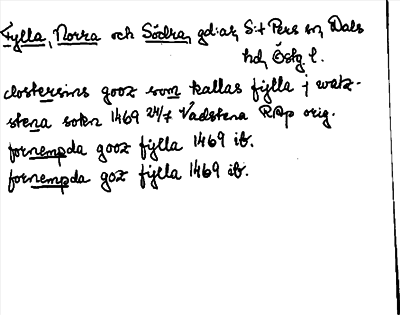 Fylla, Norra och Södra, gdar, S:t Pers sn, Dals
hd, Östg. l.
clostersins gooz som kallas fylla j watz-
stena soken 1469 24/7 Vadstena RAp orig.
fornempda gooz fylla 1469 ib.
fornempda goz fylla 1469 ib.